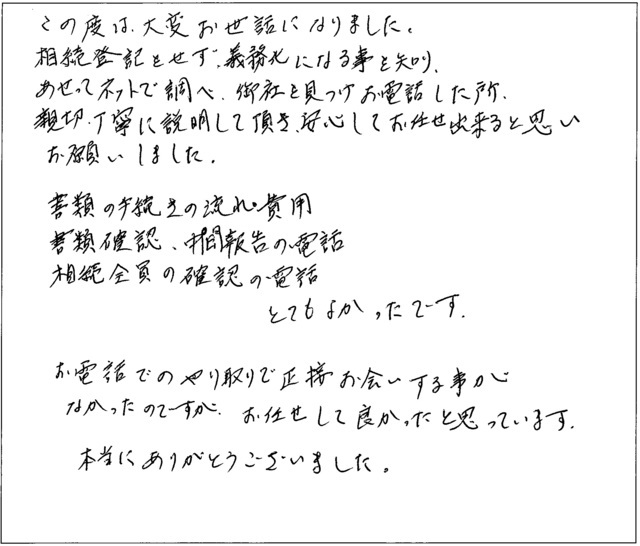 この度は、大変お世話になりました。
相続登記をせず、義務化になる事を知り、
あせってネットで調べ、御社を見つけお電話した所、
親切、丁寧に説明して頂き、安心してお任せ出来ると思い
お願いしました。
書類の手続きの流れ・費用
書類確認、中間報告の電話
相続全員の確認の電話
とてもよかったです。
お電話でのやり取りで正接お会いする事が
なかったのですが、お任せして良かったと思っています。
本当にありがとうございました。